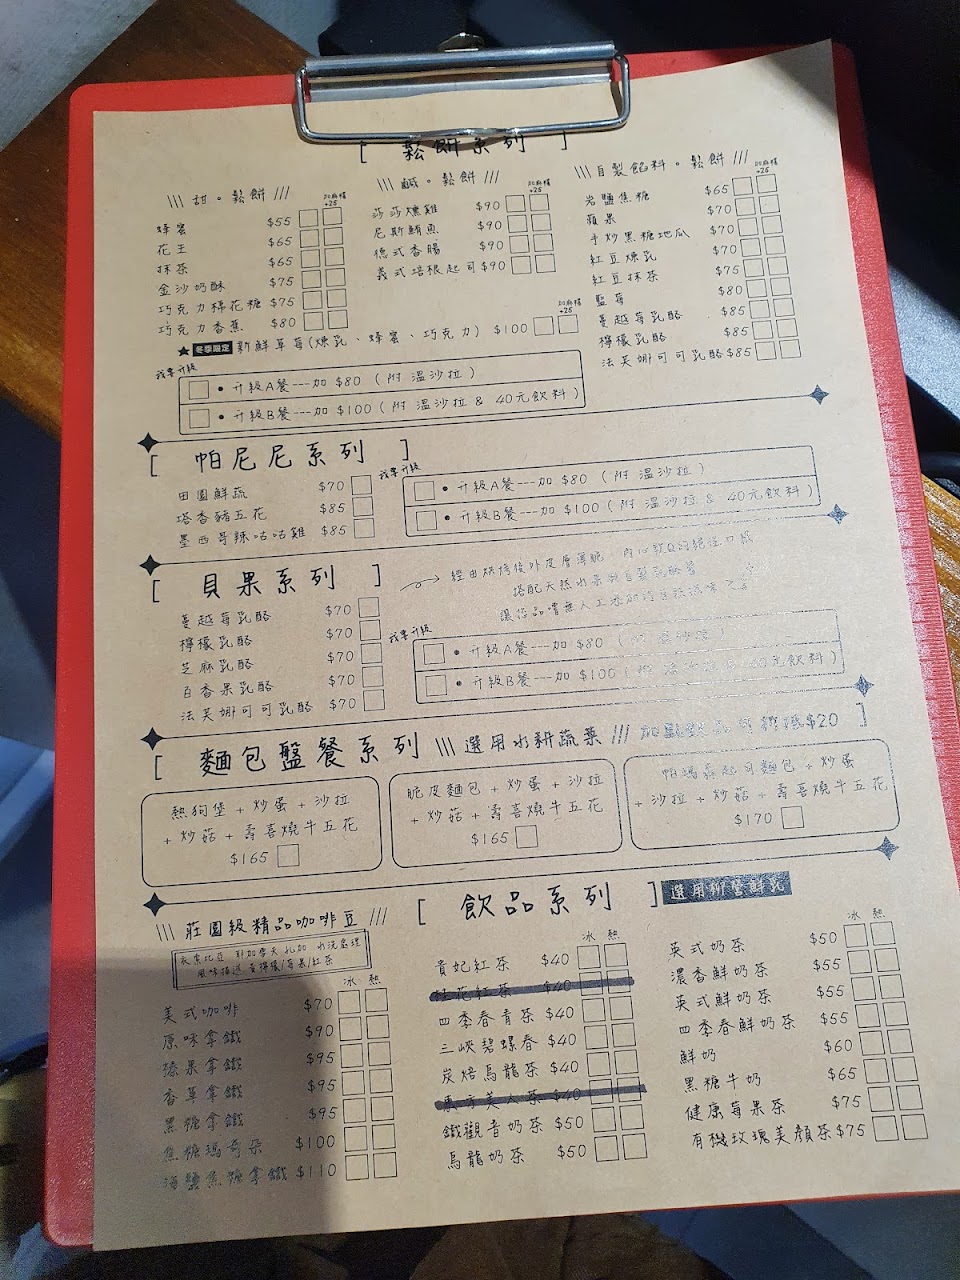 [ 鬆餅系列 ]
\\\ 甜。鬆餅 ///
加麻糬
+25
蜂蜜 $55
花生 $65
抹茶 $65
金沙奶酥 $75
巧克力棉花糖 $75
巧克力香蕉 $80
\\\ 鹹。鬆餅 ///
加麻糬
+25
莎莎燻雞 $90
尼斯鮪魚 $90
德式香腸 $90
義式培根起司 $90
\\\ 自製餡料。鬆餅 ///
加麻糬
+25
岩鹽焦糖 $65
蘋果 $70
手炒黑糖地瓜 $70
紅豆煉乳 $70
紅豆抹茶 $75
藍莓 $80
蔓越莓乳酪 $85
檸檬乳酪 $85
法芙娜可可乳酪 $85
加麻糬
+25
★ 冬季限定 新鮮草莓(煉乳、蜂蜜、巧克力) $100
我要升級
• 升級A餐---加 $80 ( 附 溫沙拉 )
• 升級B餐---加 $100 ( 附 溫沙拉 & 40元飲料 )
[ 帕尼尼系列 ]
田園鮮蔬 $70
塔香豬五花 $85
墨西哥辣咕咕雞 $85
我要升級
• 升級A餐---加 $80 ( 附 溫沙拉 )
• 升級B餐---加 $100 ( 附 溫沙拉 & 40元飲料 )
[ 貝果系列 ]
經由烘烤後外皮層薄脆、內心軟Q的絕佳口感
搭配天然水果與自製乳酪醬
蔓越莓乳酪 $70
檸檬乳酪 $70
芝麻乳酪 $70
百香果乳酪 $70
法芙娜可可乳酪 $70
我要升級
• 升級A餐---加 $80 ( 附 溫沙拉 )
• 升級B餐---加 $100 ( 附 溫沙拉 & 40元飲料 )
[ 麵包盤餐系列 \\\ 選用水耕蔬菜 /// $20 ]
熱狗堡 + 炒蛋 + 沙拉
+ 炒菇 + 壽喜燒牛五花
$165
脆皮麵包 + 炒蛋 + 沙拉
+ 炒菇 + 壽喜燒牛五花
$165
帕瑪森起司麵包 + 炒蛋
+ 沙拉 + 炒菇 + 壽喜燒牛五花
$170
[ 飲品系列 ] 選用柳營鮮乳
\\\ 莊園級精品咖啡豆 ///
衣索比亞 耶加雪夫 孔加 水洗處理
風味描述 香檸檬/莓果/紅茶
冰 熱
美式咖啡 $70
原味拿鐵 $90
榛果拿鐵 $95
香草拿鐵 $95
黑糖拿鐵 $95
焦糖瑪奇朵 $100
海鹽焦糖拿鐵 $110
冰 熱
貴妃紅茶 $40
桂花紅茶 $40
四季春青茶 $40
三峽碧螺春 $40
炭焙烏龍茶 $40
東方美人茶 $40
鐵觀音奶茶 $50
烏龍奶茶 $50
冰 熱
英式奶茶 $50
濃香鮮奶茶 $55
英式鮮奶茶 $55
四季春鮮奶茶 $55
鮮奶 $60
黑糖牛奶 $65
健康莓果茶 $75
有機玫瑰美顏茶 $75